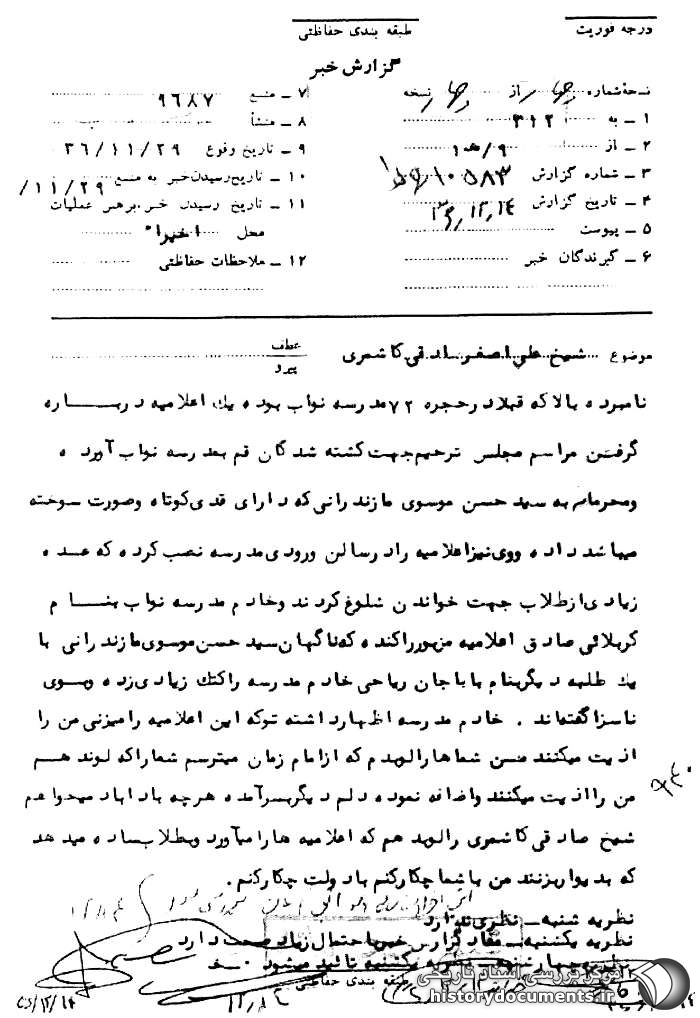 درجه فوریت
طبقه بندی حفاظتی
گزارش خبر
نسخه شماره چهار از چهار نسخه
۱ - به ۳۱۲
۲ - از ۹/ه۱
۳ - شماره گزارش ۱۰۵۸۳
۴ - تاریخ گزارش ۳۶٫۱۲٫۱۴
۵ - پیوست
۶ - گیرندگان خبر
۷ - منبع ۹۶۸۷
۸ - منشأ
۹ - تاریخ وقوع ۳۶/۱۱/۲۹
۱۰ - تاریخ رسیدن خبر به منبع ۱۱/۲۹/
۱۱ - تاریخ رسیدن خبر برهبر عملیات
محل اخیرا"
۱۲ - ملاحظات حفاظتی
موضوع شیخ علی اصغر صادقی کاشمری
عطف
پیرو
نامبرده بالا که قبلا در حجره ۷۲ مدرسه نواب بوده یك اعلامیه در بــاره
گرفتن مراسم مجلس ترحیم جهت کشته شدگان قم بمدرسه نواب آورده
ومحرمانه به سید حسن موسوی مازندرانی که دارای قدی کوتاه وصورت سوخته
میباشد داده ووی نیز اعلامیه را در سالن ورودی مدرسه نصب کرده که عده
زیادی از طلاب جهت خواندن شلوغ کردند وخادم مدرسه نواب بنــام
کربلائی صادق اعلامیه مزبور را کنده که ناگهان سید حسن موسوی مازندرانی با
یك طلبه دیگر بنام باباجان ریاحی خادم مدرسه را کتك زیادی زده وبوی
ناسزا گفتهاند . خادم مدرسه اظهار داشته توکه این اعلامیه را میزنی من را
اذیت میکنند من شماها را لو میدهم که از امام زمان میترسم شما را که لو ندهم
من را اذیت میکنند واضافه نموده دلم دیگر بسر آمده هرچه باداباد میخواهم
شیخ صادقی کاشمری را لو بدهم که اعلامیه ها را میآورد وبطلاب ساده میدهد
که بدیوار بزنند من با شما چکار کنم با دولت چکار کنم .
نظریه شنبه - نظری ندارد
نظریه یکشنبه - مفاد گزارش خبر باحتمال زیاد صحت دارد
نظریه چهارشنبه - نظریه یکشنبه تائید میشود .
طبقه بندی حفاظتی
۹۳۰
مرکز بررسی اسناد تاریخی
historydocuments.ir